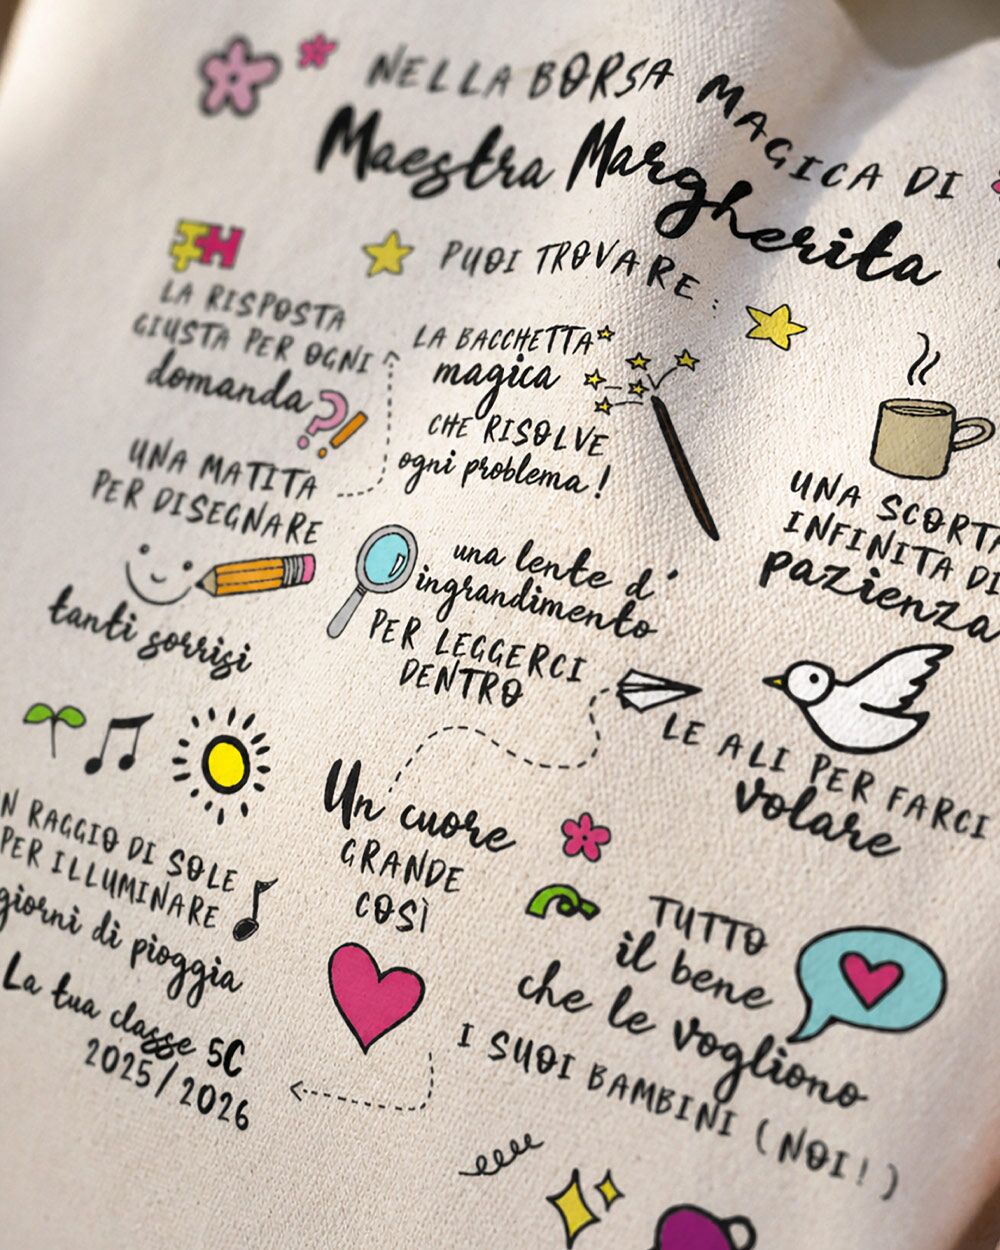 NELLA BORSA MAGICA DI
Maestra Margherita
PUOI TROVARE:
LA RISPOSTA
GIUSTA PER OGNI
domanda
?!
LA BACCHETTA
magica
CHE RISOLVE
ogni problema!
UNA SCORTA
INFINITA DI
pazienza
UNA MATITA
PER DISEGNARE
tanti sorrisi
una lente d'
ingrandimento
PER LEGGERCI
DENTRO
LE ALI PER FARCI
volare
N RAGGIO DI SOLE
PER ILLUMINARE
giorni di pioggia
Un cuore
GRANDE
COSÌ
TUTTO
il bene
che le vogliono
I SUOI BAMBINI (NOI!)
La tua classe 5C
2025/2026